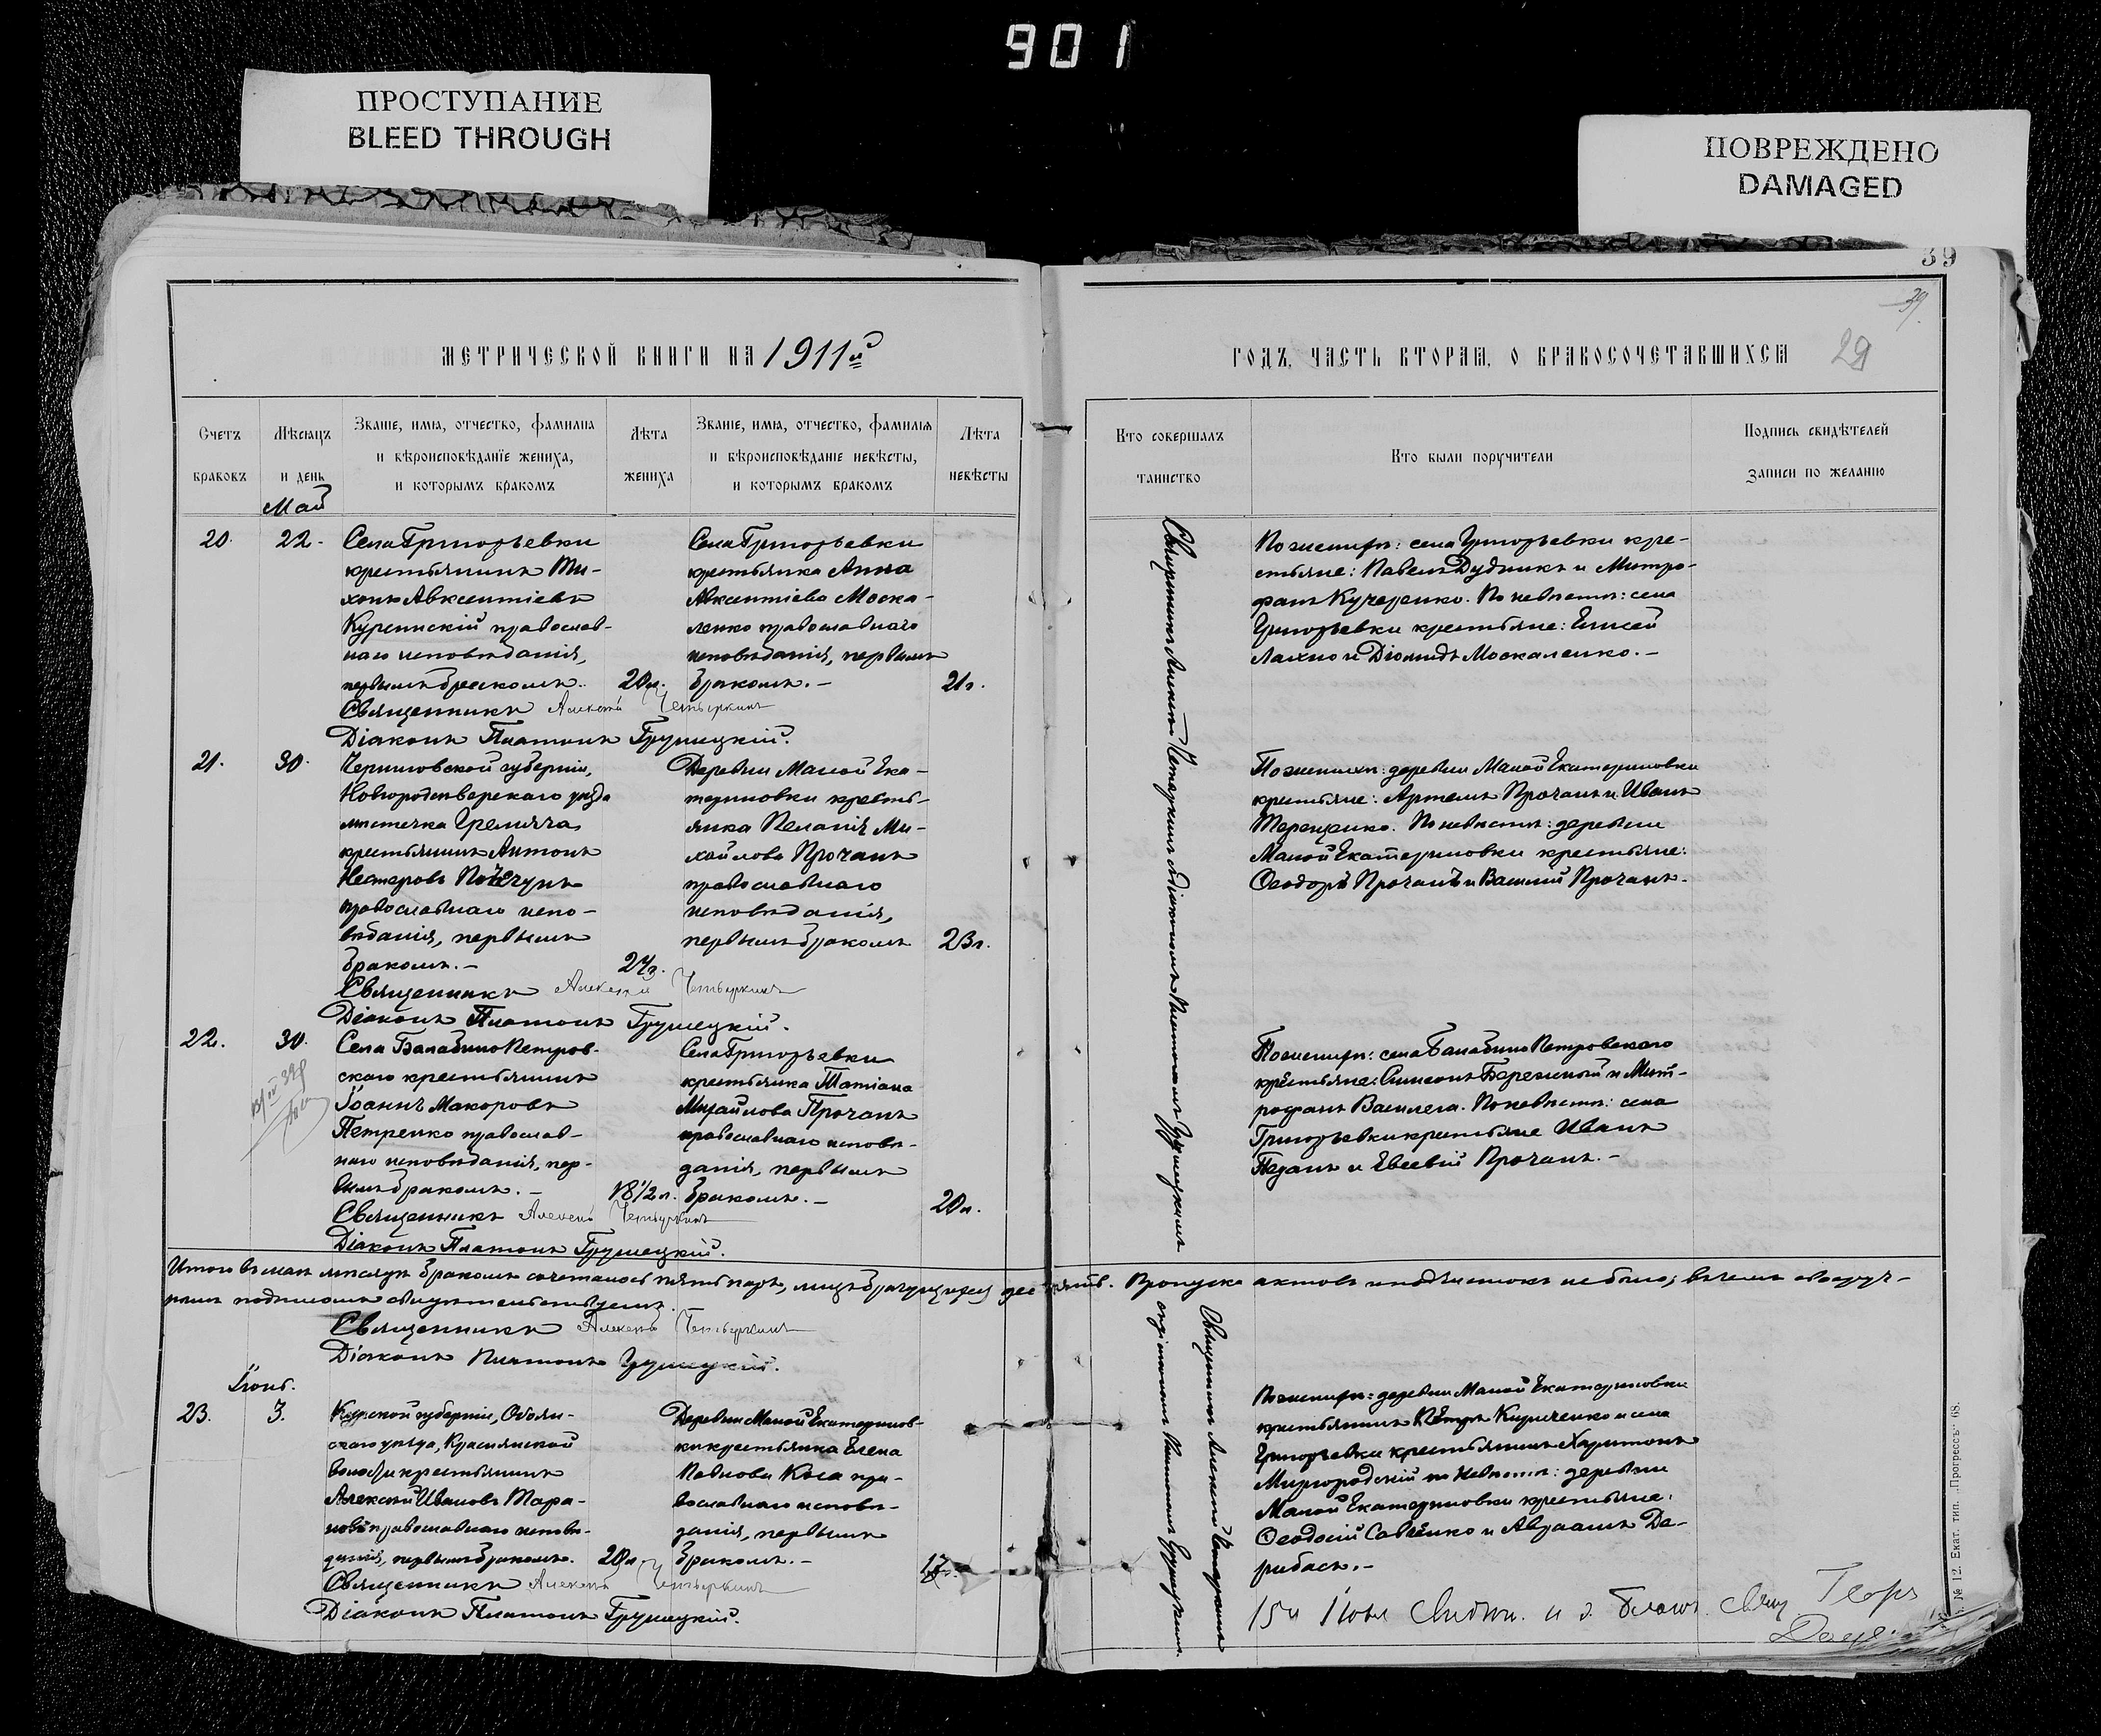 901
ПРОСТУПАНИЕ
BLEED THROUGH
ПОВРЕЖДЕНО
DAMAGED
39
39
МЕТРИЧЕСКОЙ КНИГИ НА 1911й
ГОДЪ, ЧАСТЬ ВТОРАЯ, О БРАКОСОЧЕТАВШИХСЯ
29
Счетъ браковъ
Мѣсяцъ и день
Званіе, имя, отчество, фамилія и вѣроисповѣданіе жениха, и которымъ бракомъ
Лѣта жениха
Званіе, имя, отчество, фамилія и вѣроисповѣданіе невѣсты, и которымъ бракомъ
Лѣта невѣсты
Кто совершалъ таинство
Кто были поручители
Подпись свидѣтелей записи по желанію
Май
20. 22.
Села Григорьевки
крестьянинъ Ти-
хонъ Авксентіевъ
Куренскій православ-
наго исповѣданія,
первымъ бракомъ. 20л.
Села Григорьевки
крестьянка Анна
Авксентіева Моска-
ленко православнаго
исповѣданія, первымъ
бракомъ.- 21г.
Священникъ Алексѣй Четыркинъ
Діаконъ Платонъ Грушецкій.
По женихѣ: села Григорьевки кре-
стьяне: Павелъ Дудникъ и Митро-
фанъ Кучеренко. По невѣстѣ: села
Григорьевки крестьяне: Елисей
Лахно и Діомидъ Москаленко.-
Священникъ Алексѣй Четыркинъ съ діакономъ Платономъ Грушецкимъ
21. 30.
Черниговской губерніи,
Новгородсѣверскаго уѣзда
мѣстечка Гремяча
крестьянинъ Антонъ
Нестеровъ
православнаго испо-
вѣданія, первымъ
бракомъ.- 24г.
Деревни Малой Ека-
териновки кресть-
янка Пелагія Ми-
хайлова Прочанъ
православнаго
исповѣданія,
первымъ бракомъ 23г.
Священникъ Алексѣй Четыркинъ
Діаконъ Платонъ Грушецкій.
По женихѣ: деревни Малой Екатериновки
крестьяне: Артемъ Прочанъ и Иванъ
Терещенко. По невѣстѣ: деревни
Малой Екатериновки крестьяне:
Ѳеодоръ Прочанъ и Василій Прочанъ.
22. 30.
Села Балабино Петров-
скаго крестьянинъ
Іоаннъ Макаровъ
Петренко православ-
наго исповѣданія, пер-
вымъ бракомъ.- 18 1/2 л.
Села Григорьевки
крестьянка Татіана
Михайлова Прочанъ
православнаго исповѣ-
данія, первымъ
бракомъ.- 20л.
Священникъ Алексѣй Четыркинъ
Діаконъ Платонъ Грушецкій.
По женихѣ: села Балабино Петровскаго
крестьяне: Симеонъ Бережный и Мит-
рофанъ Василега. По невѣстѣ: села
Григорьевки крестьяне Иванъ
и Евсевій Прочанъ.-
Итого въ маѣ мѣсяцѣ бракомъ сочеталось пять паръ, лицъ брачущихся десять. Пропуска актовъ и подчистокъ не было; въ чемъ своеруч-
нымъ подписомъ свидѣтельствуемъ.
Священникъ Алексѣй Четыркинъ
Діаконъ Платонъ Грушецкій.
Іюнь.
23. 3.
Курской губерніи, Обоян-
скаго уѣзда,
волости крестьянинъ
Алексѣй Ивановъ Тара-
новъ православнаго исповѣ-
данія, первымъ бракомъ. 20л.
Деревни Малой Екатеринов-
ки крестьянка Елена
Павлова Коса пра-
вославнаго исповѣ-
данія, первымъ
бракомъ.-
Священникъ Алексѣй Четыркинъ
Діаконъ Платонъ Грушецкій.
Священникъ Алексѣй Четыркинъ
съ діакономъ Платономъ Грушецкимъ.
По женихѣ: деревни Малой Екатериновки
крестьянинъ Петръ Кириченко и села
Григорьевки крестьянинъ Харитонъ
Миргородскій по невѣстѣ: деревни
Малой Екатериновки крестьяне:
Ѳеодосій Савченко и Авраамъ Де-
рибасъ.-
№ 12. Екат. тип. „Прогрессъ“ 68.